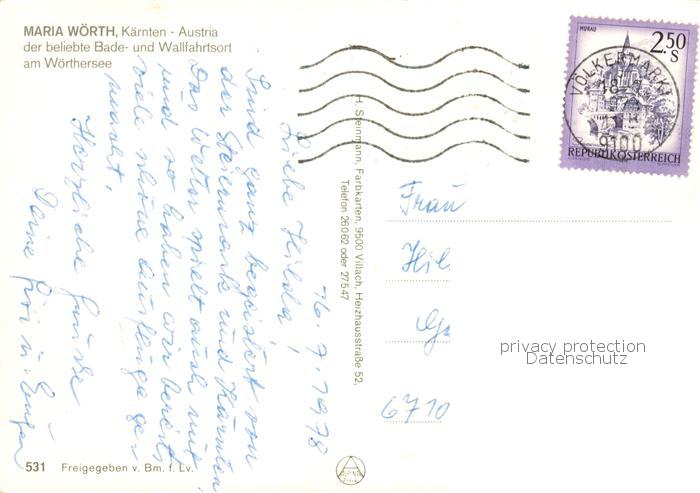 MARIA WÖRTH, Kärnten - Austria
der beliebte Bade- und Wallfahrtsort
am Wörthersee
16. 7. 1978
Liebe Hilda!
Sind ganz begeistert von
der Steiermark und Kärnten
Das Wetter spielt auch mit
und so haben wir bereits
viele schöne Ausflüge ge-
macht.
Herzliche Grüsse
Deine
531 Freigegeben v. Bm. f. Lv.
H. Steinmann, Farbkarten, 9500 Villach, Heizhausstraße 52,
Telefon 26062 oder 27547
MURAU
2.50
S
REPUBLIK ÖSTERREICH
VÖLKERMARKT
9100
Frau
Hil
6710
privacy protection
Datenschutz